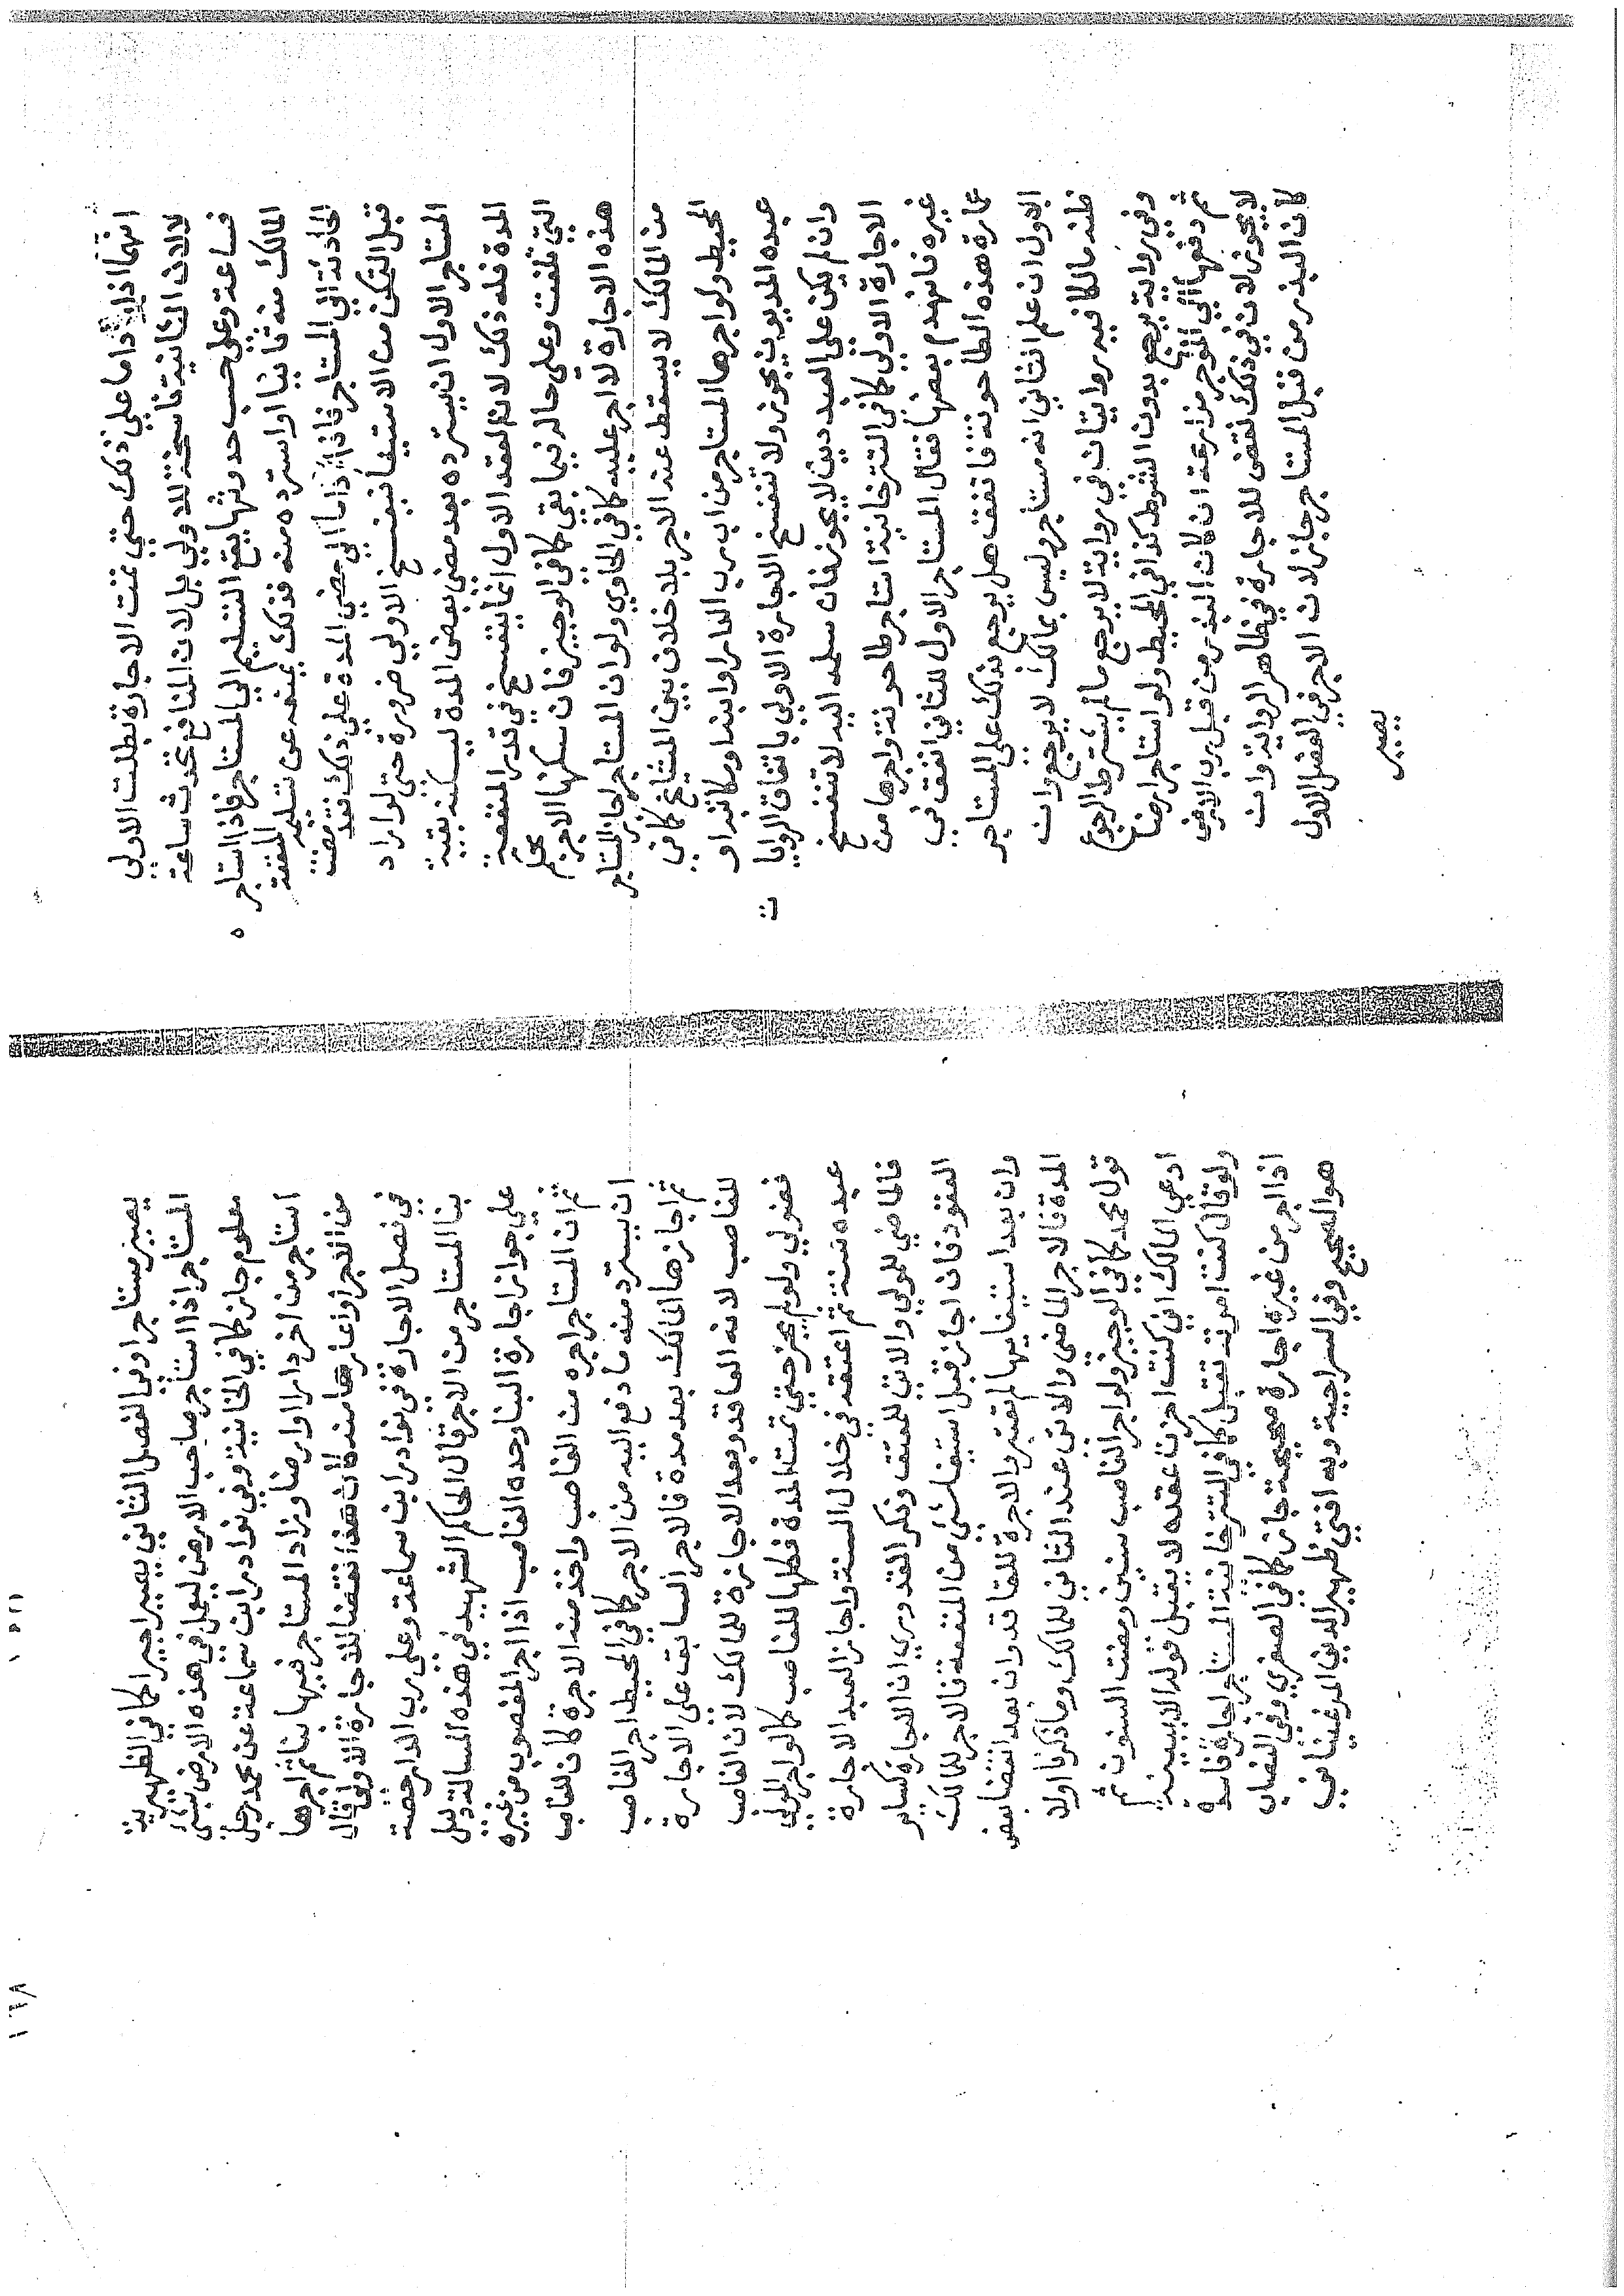 انهما اذا داما علي ذلك حتي تمت الاجارة بطلت الاولي
لا لان الثانية فاسخة للاولي بل لان المنافع تحدث ساعة
فساعة وعلي حسب حدوثها يقع التسليم الي المستاجر فاذا استاجر
المالك منه ثانيا واسترده منه فذلك يمنعه عن تسليم المنفعة
الحادثة الي المستاجر فاذا داما الي مضي المدة علي ذلك فقد مضت
قبل التمكن من الاستيفا فينفسخ الاولي ضرورة حتي لو اراد
المستاجر الاول ان يسترده بعد مضي بعض المدة ليسكنه بقية
المدة فله ذلك لانه العقد الاول انما ينفسخ في قدر المنفعة
التي تلفت وعلي حاله فيما بقي كافي الوجيز فان سكنها الاجر بحكم
هذه الاجارة لا اجر عليه كما في الحاوي ولو ان المستاجر اجر المستاجر
من المالك لا يسقط عنه الاجر بلا خلاف بين المشايخ كما في
المحيط ولو اجرها المستاجر من اب رب الدار او ابنه او مكاتبه او
عبده المديون يجوز ولا تنفسخ الاجارة الاولي باتفاق الروايا
ت
وان لم يكن علي العبد دين لا يجوز فان سلمه اليه لا تنفسخ
الاجارة الاولي كما في التترخانية استاجر طاحونة واجرها من
غيره فانهدم بعضها فقال المستاجر الاول للثاني انفق في
عمارة هذه الطاحونة فانفق هل يرجع بذلك علي المستاجر
الاول ان علم الثاني انه مستاجر وليس بمالك لا يرجع وان
ظنه مالكا فيه روايتان في رواية لا يرجع ما لم يشترط الرجوع
وفي رواية يرجع بدون الشرط كذا في المحيط ولو استاجر ارضا
ثم دفعها الي المؤجر مزارعة ان كان البذر من قبل رب الارض
لا يجوز لان في ذلك نقض للاجارة في ظاهر الرواية وان
كان البذر من قبل المستاجر جاز لان الاجر في الفصل الاول
يصير
يصير مستاجرا وفي الفصل الثاني يصير اجيرا كما في الظهيرية
المستاجر اذا استاجر صاحب الارض ليعمل في هذه الارض بشي
معلوم جاز كما في الخانية وفي نوادر ابن سماعة عن محمد رجل
استاجر من اخر دارا او ارضا وزاد المستاجر فيها بنا ثم اجرها
من الاجر او اعارها منه كان هذا نقضا للاجارة الاولي قال
في فصل الاجارة في نوادر ابن سماعة وعلي رب الدار حصة
بنا المستاجر من الاجر قال الحاكم الشهيد في هذه المسالة دليل
علي جواز اجارة البنا وحده الغاصب اذا اجر المغصوب من غيره
ثم ان المستاجر اجره من الغاصب واخذ منه الاجرة كان للغاصب
ان يسترد منه ما دفع اليه من الاجر كما في المحيط اجر الغاصب
ثم اجازها المالك بعد مدة فالاجر السابق علي الاجارة
للغاصب لانه العاقد وبعد الاجازة للمالك لان الغاصب
فضولي ولو لم يجز حتي تمت المدة فكلها للغاصب كما لو اجر المولي
عبده سنة ثم اعتقه في خلال السنة واجاز العبد الاجارة
فالماضي للمولي والاتي للمعتق وذكر القدوري ان الاجارة كساير
العقود فان اجاز قبل استيفا شي من المنفعة فالاجر للمالك
وان بعد استيفايها لم تعتبر والاجرة للعاقد وان بعد انقضا بعض
المدة فالاجر الماضي والاتي عند الثاني للمالك وما ذكرنا اولا
قول محمد كما في الوجيز ولو اجر الغاصب سنين ومضت السنون ثم
ادعي المالك اني كنت اجزت عقده لا يقبل قوله الا ببينة
ولو قال كنت امرته تقبل كما في التترخانية المستاجر اجارة فاسدة
اذا اجر من غيره اجارة صحيحة جاز كما في الصغري وفي النصاب
هو الصحيح وفي السراجية وبه افتي ظهير الدين المرغيناني